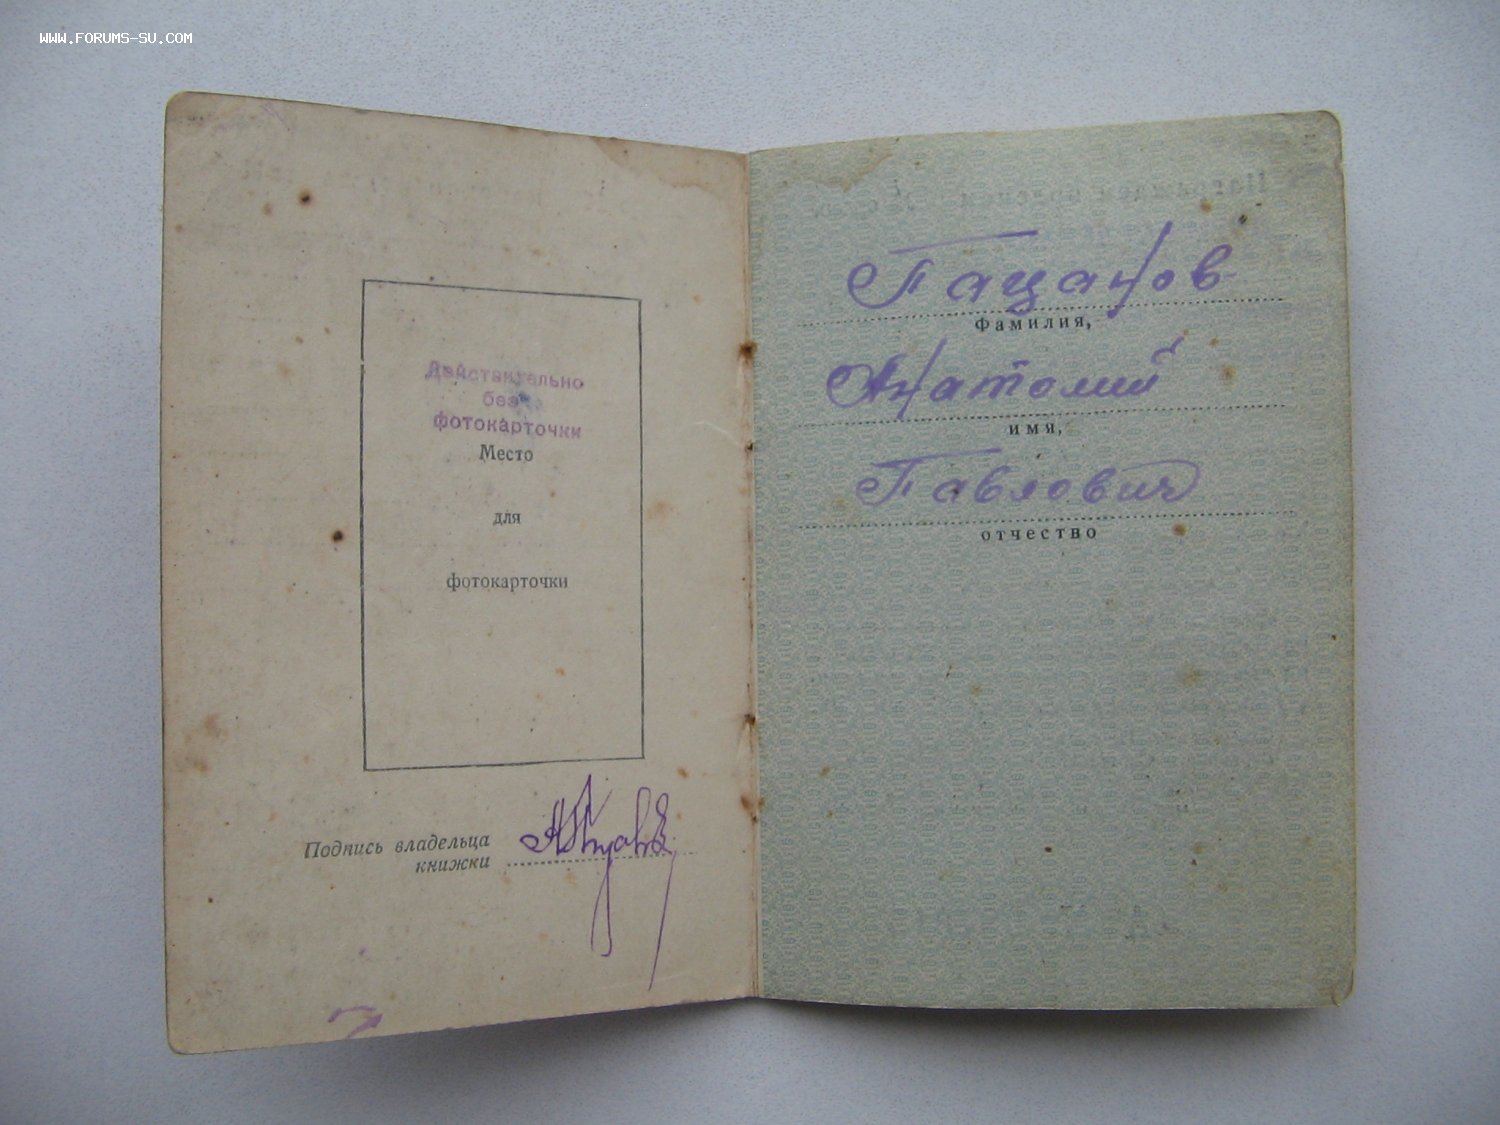 WWW.FORUMS-SU.COM
Действительно
без
фотокарточки
Место
для
фотокарточки
Подпись владельца
книжки
Пацанов
Фамилия,
Анатолий
имя,
Павлович
отчество